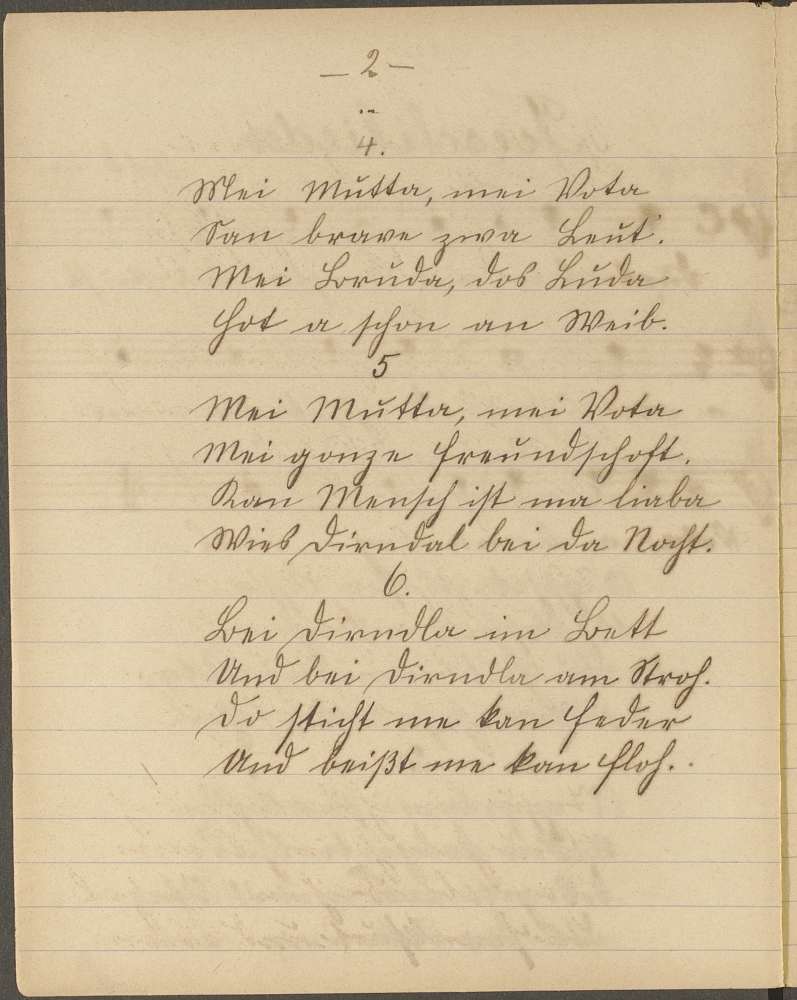 — 2 —
4.
Mei Mutta, mei Vota
San brave zwa Leut.
Mei Bruda, dos Luda
Hot a schon an Weib.
5
Mei Mutta, mei Vota
Mei gonze Freundschoft.
Kan Mensch ist ma liaba
Wies Dirndal bei da Nocht.
6.
Bei Dirndla im Bett
Und bei Dirndla am Stroh.
Do sticht me kan Feder
Und beißt me kan Floh.